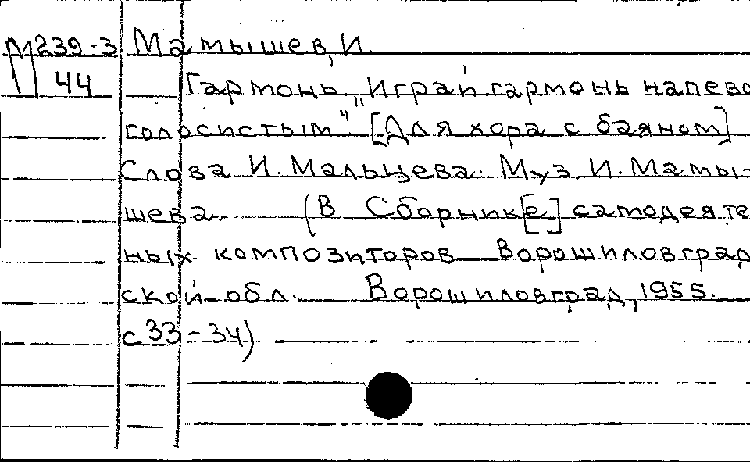 М239-3 Матышев, И.
44 Гармонь „Играй гармонь напево
голосистым". [Для хора с баяном]
Слова И. Мальцева. Муз. И. Маты-
шева. (В Сборник[е] самодеяте
ных композиторов Ворошиловград
ской обл. Ворошиловград, 1955.
с 33-34)